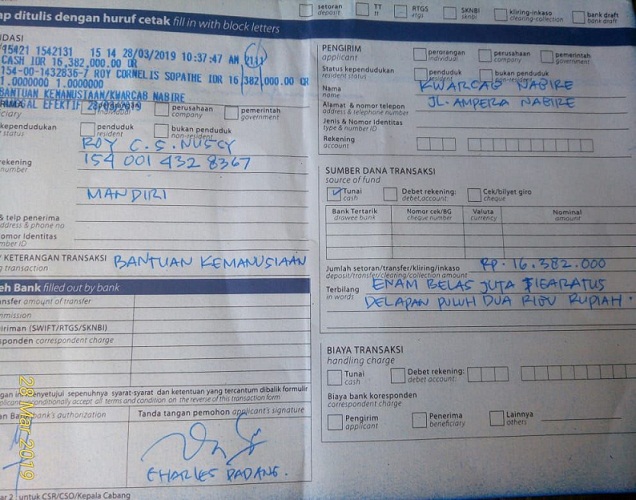 setoran
deposit
TT
RTGS
rtgs
SKNBI
sknbi
kliring-inkaso
clearing-collection
bank draft
bank draft
ap ditulis dengan huruf cetak fill in with block letters
IDASI
15421 1542131 15 14 28/03/2019 10:37:47 AM 2111
CASH IDR 16,382,000.00 CR
154-00-1432836-7 ROY CORNELIS SOPATHE IDR 16,382,000.00 CR
1.0000000 1.0000000
BANTUAN KEMANUSIAAN/KWARCAB NABIRE
EFEKTIF 28/03/2019
ciary
individual
perusahaan
company
pemerintah
government
kependudukan
status
penduduk
resident
bukan penduduk
non-resident
ROY C.S. NUSSY
rekening
number
154 001 432 8367
MANDIRI
& telp penerima
address & phone no
omor Identitas
mber ID
KETERANGAN TRANSAKSI BANTUAN KEMANUSIAAN
transaction
eh Bank filled out by bank
ansfer amount of transfer
mmission
iriman (SWIFT/RTGS/SKNBI)
sponden correspondent charge
menyetujui sepenuhnya syarat-syarat dan ketentuan yang tercantum dibalik formulir
conditionally accept all terms and condition on the reverse of this transaction form
an Bank bank's authorization
Tanda tangan pemohon applicant's signature
CHARLES PADANG.
28 Mar 2019
ar 2 : untuk CSR/CSO/Kepala Cabang
PENGIRIM
applicant
perorangan
individual
perusahaan
company
pemerintah
government
Status kependudukan
resident status
penduduk
resident
bukan penduduk
non-resident
Nama
name
KWARCAB NABIRE
Alamat & nomor telepon
address & telephone number
JL. AMPERA NABIRE
Jenis & Nomor Identitas
type & number ID
Rekening
account
SUMBER DANA TRANSAKSI
source of fund
Tunai
cash
Debet rekening:
debet account:
Cek/bilyet giro
cheque
Bank Tertarik
drawee bank
Nomor cek/BG
cheque number
Valuta
currency
Nominal
amount
Jumlah setoran/transfer/kliring/inkaso
deposit/transfer/clearing/collection amount
RP. 16.382.000
Terbilang
in words
ENAM BELAS JUTA
DELAPAN PULUH DUA RIBU RUPIAH.
BIAYA TRANSAKSI
handling charge
Tunai
cash
Debet rekening:
debet account:
Biaya bank koresponden
correspondent charge
Pengirim
applicant
Penerima
beneficiary
Lainnya
others